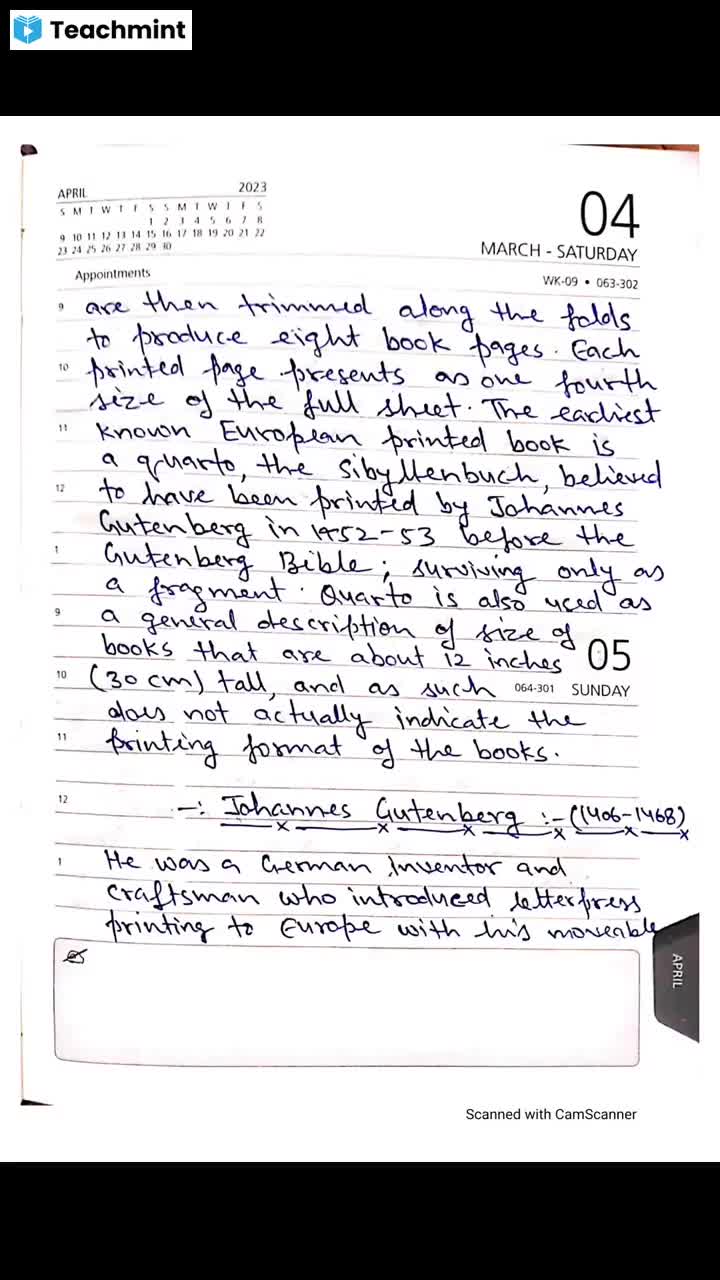 Teachmint
APRIL 2023
S M T W T F S S M T W T F S
1 2 3 4 5 6 7 8
9 10 11 12 13 14 15 16 17 18 19 20 21 22
23 24 25 26 27 28 29 30
04
MARCH - SATURDAY
Appointments
WK-09 • 063-302
9 are then trimmed along the folds
to produce eight book pages. Each
10 printed page presents as one fourth
size of the full sheet. The earliest
11 known European printed book is
a quarto, the Sibyllenbuch, believed
12 to have been printed by Johannes
Gutenberg in 1452-53 before the
1 Gutenberg Bible; surviving only as
a fragment. Quarto is also used as
9 a general description of size of
books that are about 12 inches 05
10 (30 cm) tall, and as such 064-301 SUNDAY
does not actually indicate the
11 printing format of the books.
12 -: Johannes Gutenberg :- ((1406-1468)
1 He was a German Inventor and
craftsman who introduced letterpress
printing to Europe with his moveable
APRIL
Scanned with CamScanner